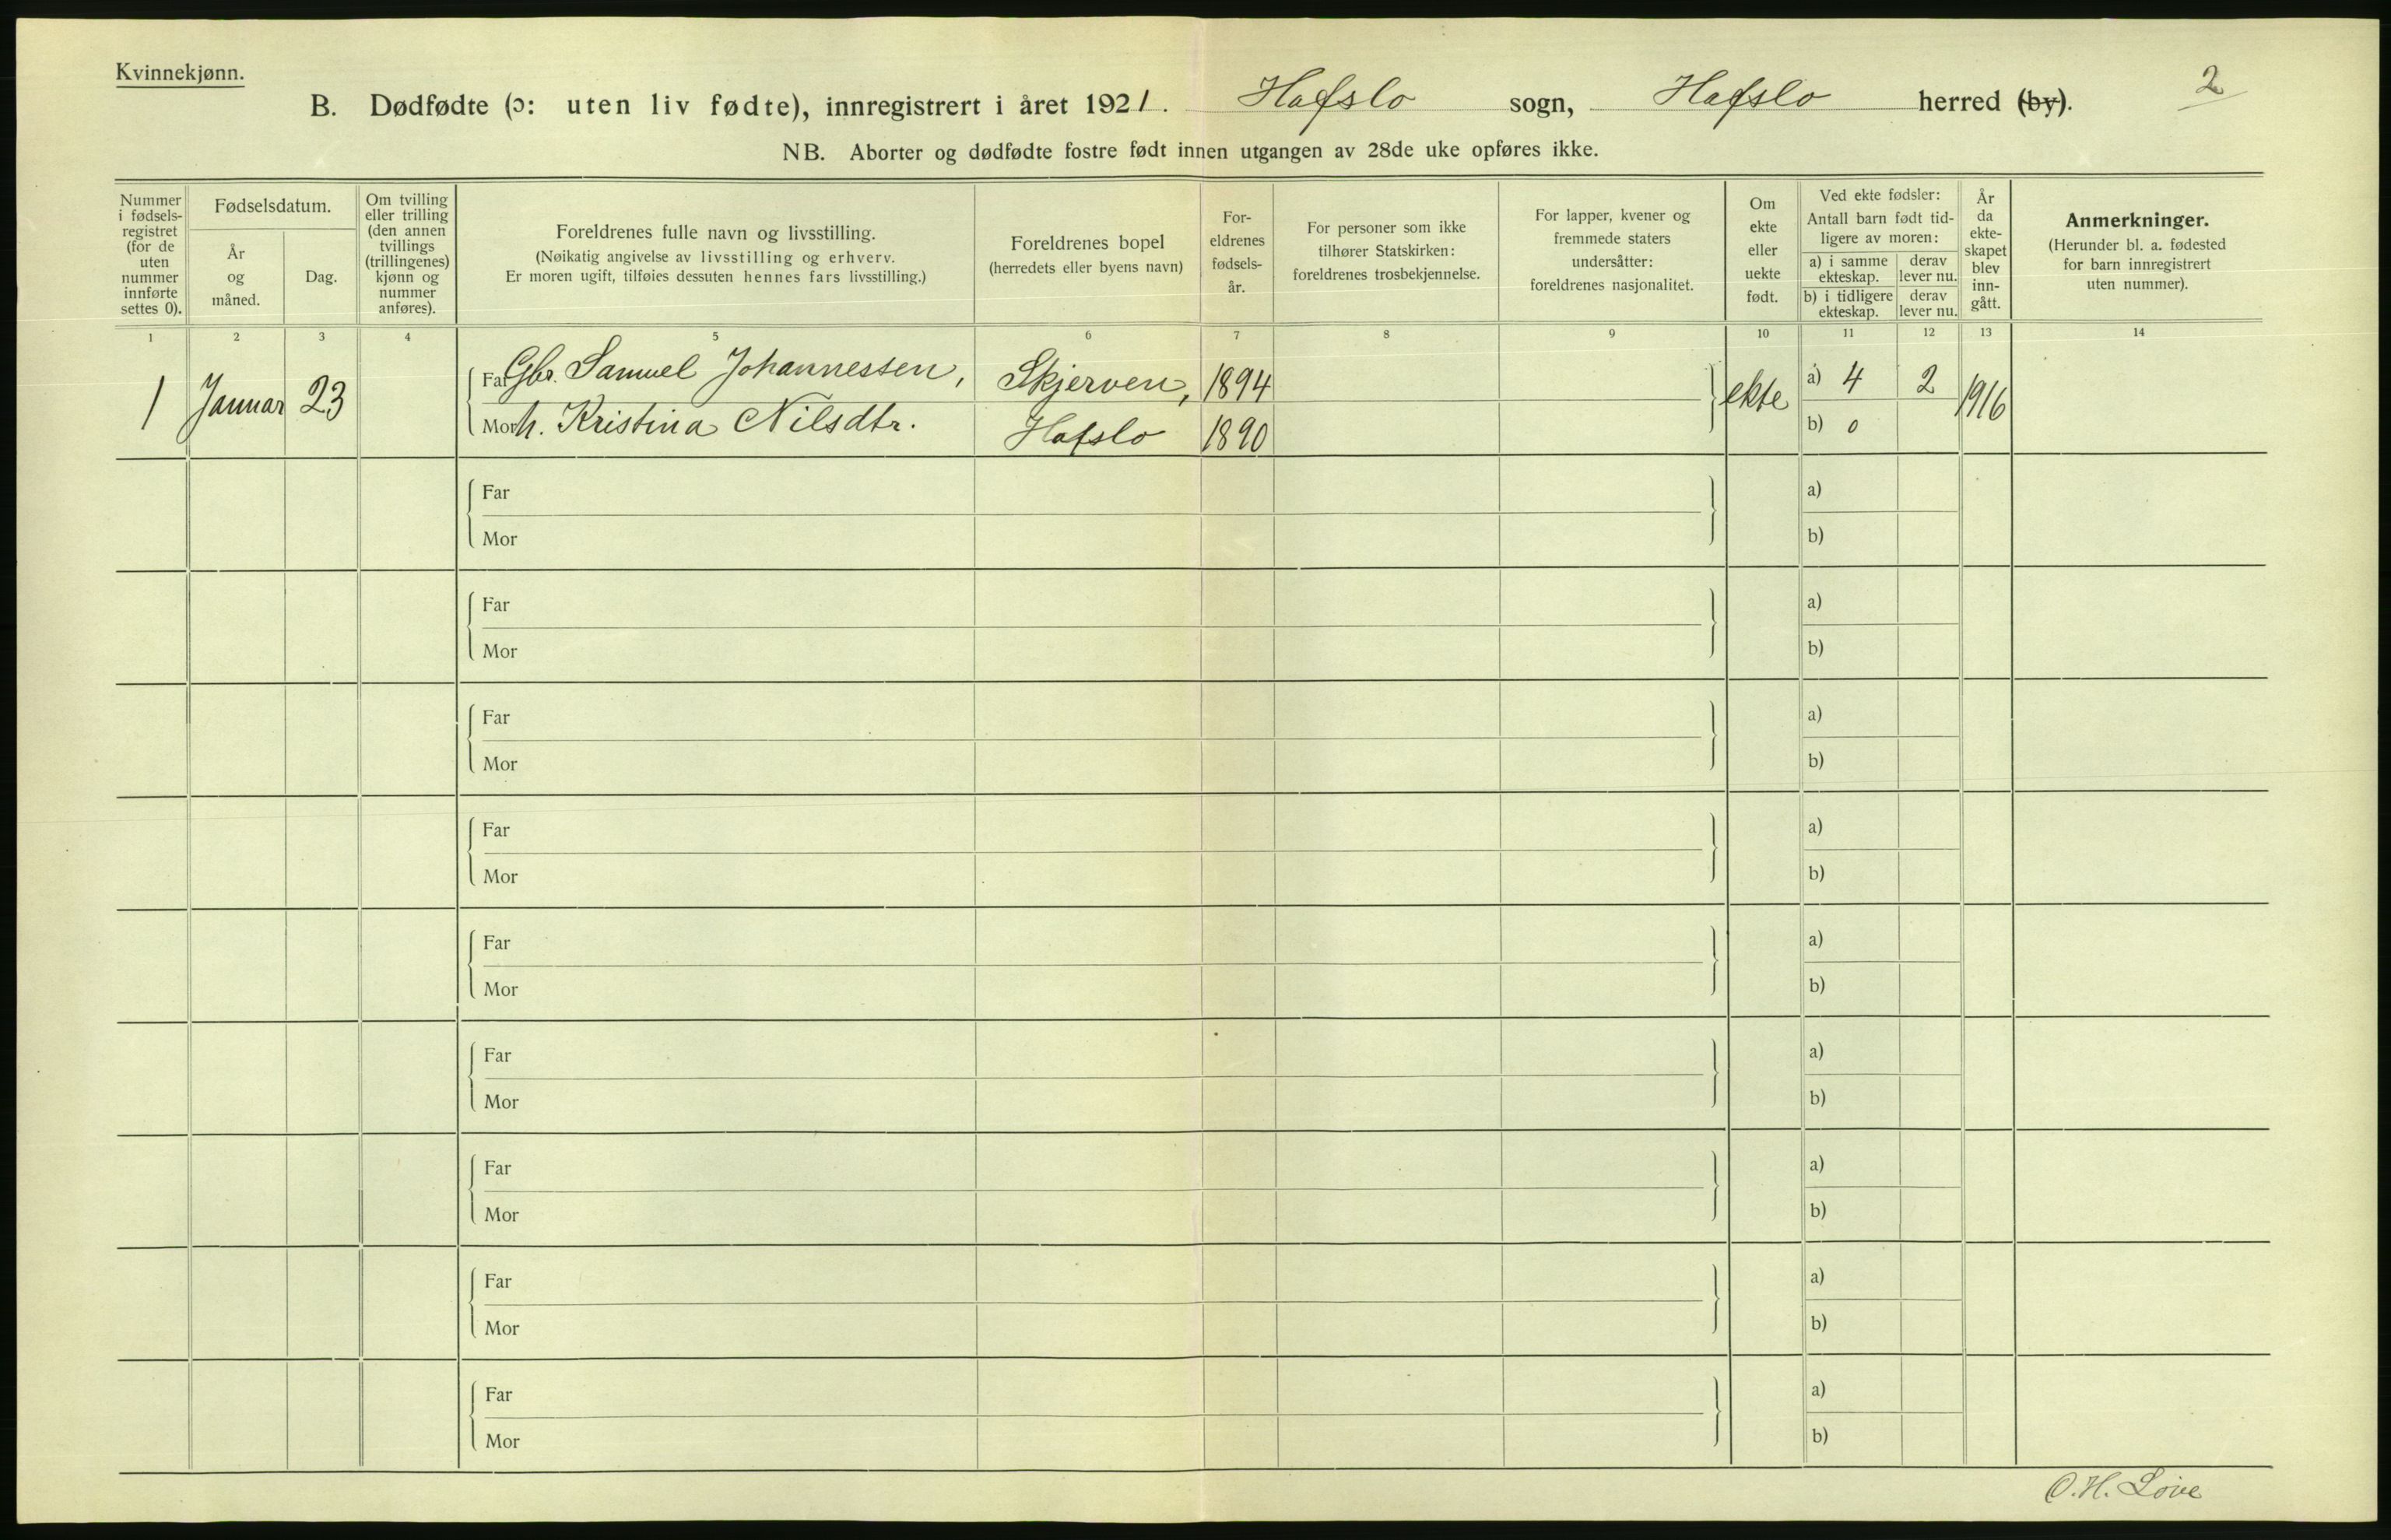 Kvinnekjønn.
B. Dødfødte (ɔ: uten liv fødte), innregistrert i året 1921. Hafslo sogn, Hafslo herred (by). 2
NB. Aborter og dødfødte fostre født innen utgangen av 28de uke opføres ikke.
Nummer
i fødsels-
registret
(for de
uten
nummer
innførte
settes 0).
Fødselsdatum.
År
og
måned.
Dag.
Om tvilling
eller trilling
(den annen
tvillings
(trillingenes)
kjønn og
nummer
anføres).
Foreldrenes fulle navn og livsstilling.
(Nøikatig angivelse av livsstilling og erhverv.
Er moren ugift, tilføies dessuten hennes fars livsstilling.)
Foreldrenes bopel
(herredets eller byens navn)
For-
eldrenes
fødsels-
år.
For personer som ikke
tilhører Statskirken:
foreldrenes trosbekjennelse.
For lapper, kvener og
fremmede staters
undersåtter:
foreldrenes nasjonalitet.
Om
ekte
eller
uekte
født.
Ved ekte fødsler:
Antall barn født tid-
ligere av moren:
a) i samme
ekteskap.
derav
lever nu.
b) i tidligere
ekteskap.
derav
lever nu.
År
da
ekte-
skapet
blev
inn-
gått.
Anmerkninger.
(Herunder bl. a. fødested
for barn innregistrert
uten nummer).
1 2 3 4 5 6 7 8 9 10 11 12 13 14
1 Januar 23
Far Gbr. Samuel Johannessen, Skjerven, 1894
Mor h. Kristina Nilsdtr. Hafslo 1890
ekte
a) 4 2
b) 0
1916
Far a)
Mor b)
Far a)
Mor b)
Far a)
Mor b)
Far a)
Mor b)
Far a)
Mor b)
Far a)
Mor b)
Far a)
Mor b)
Far a)
Mor b)
Far a)
Mor b)
O. H. Loive